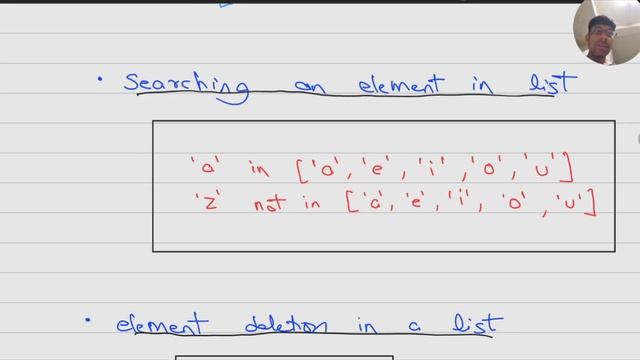 • Searching an element in list
'a' in ['a', 'e', 'i', 'o', 'u']
'z' not in ['a', 'e', 'i', 'o', 'u']
• element deletion in a list